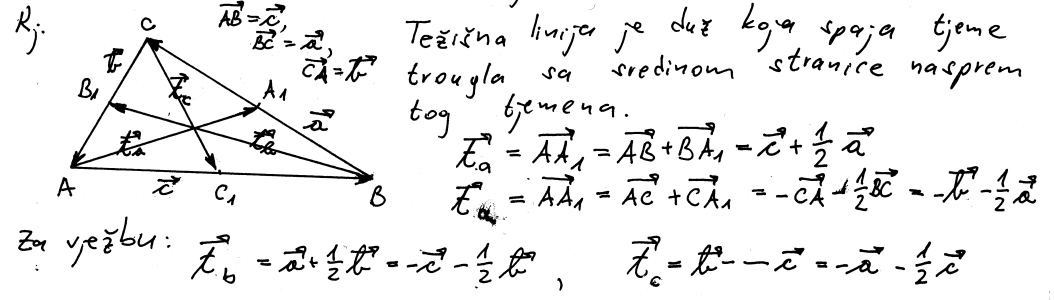 Rj.
C
B₁
A₁
A
C₁
B
\vec{b}
\vec{t}_c
\vec{a}
\vec{t}_a
\vec{t}_b
\vec{c}
\vec{AB} = \vec{c},
\vec{BC} = \vec{a},
\vec{CA} = \vec{b}
Težišna linija je duž koja spaja tjeme
trougla sa sredinom stranice naspram
tog tjemena.
\vec{t}_a = \vec{AA_1} = \vec{AB} + \vec{BA_1} = \vec{c} + \frac{1}{2}\vec{a}
\vec{t}_a = \vec{AA_1} = \vec{AC} + \vec{CA_1} = -\vec{CA} - \frac{1}{2}\vec{BC} = -\vec{b} - \frac{1}{2}\vec{a}
Za vježbu: \vec{t}_b = \vec{a} + \frac{1}{2}\vec{b} = -\vec{c} - \frac{1}{2}\vec{b}, \vec{t}_c = \vec{b} - - \vec{c} = -\vec{a} - \frac{1}{2}\vec{c}